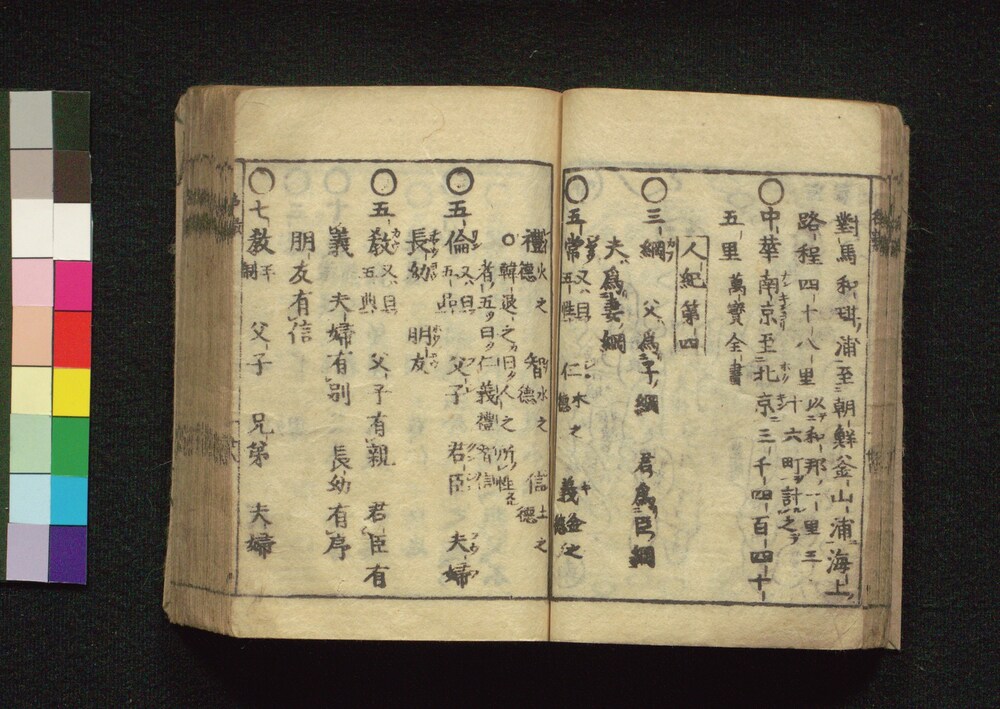 對馬和珥浦至朝鮮釜山浦海上
路程四十八里以和那一里三十六町計之
○中華南京至北京三千四百四十
五里 萬寶全書
人紀第四
○三綱 父爲子綱 君爲臣綱
夫爲妻綱
○五常又曰五性 仁木之德 義金之德
禮火之德 智水之德 信土之德
○韓退之曰人之所性
者五曰仁義禮智信
○五倫又曰五品 父子 君臣 夫婦
長幼 朋友
○五敎又曰五典 父子有親 君臣有
義 夫婦有別 長幼有序
朋友有信
○七敎王制 父子 兄弟 夫婦